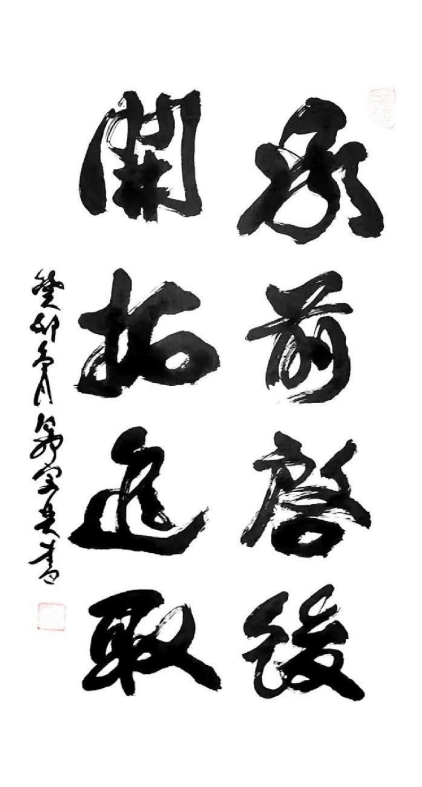 承前啓後
開拓進取
癸卯
月
書